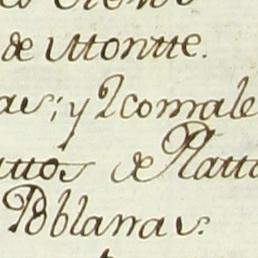 de Monte.
as; y 2 comale
attos de Platta
Poblanas.